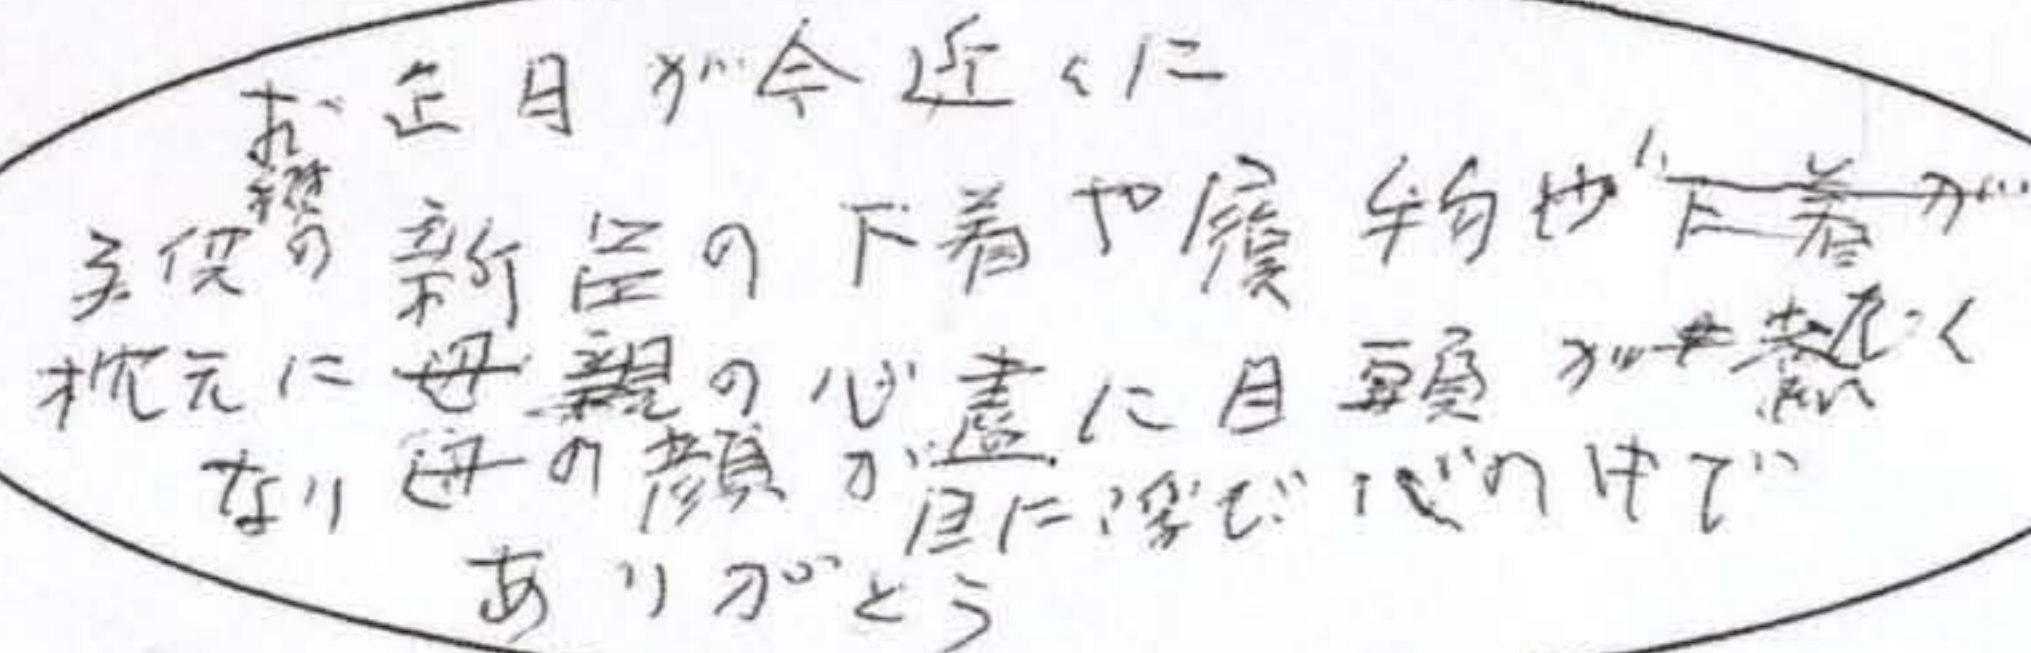 お正月が今近くに
子供の新品の下着や履物や下着が
枕元に母親の心盡に目頭が熱く
なり母の顔が目に浮び心の中で
ありがとう